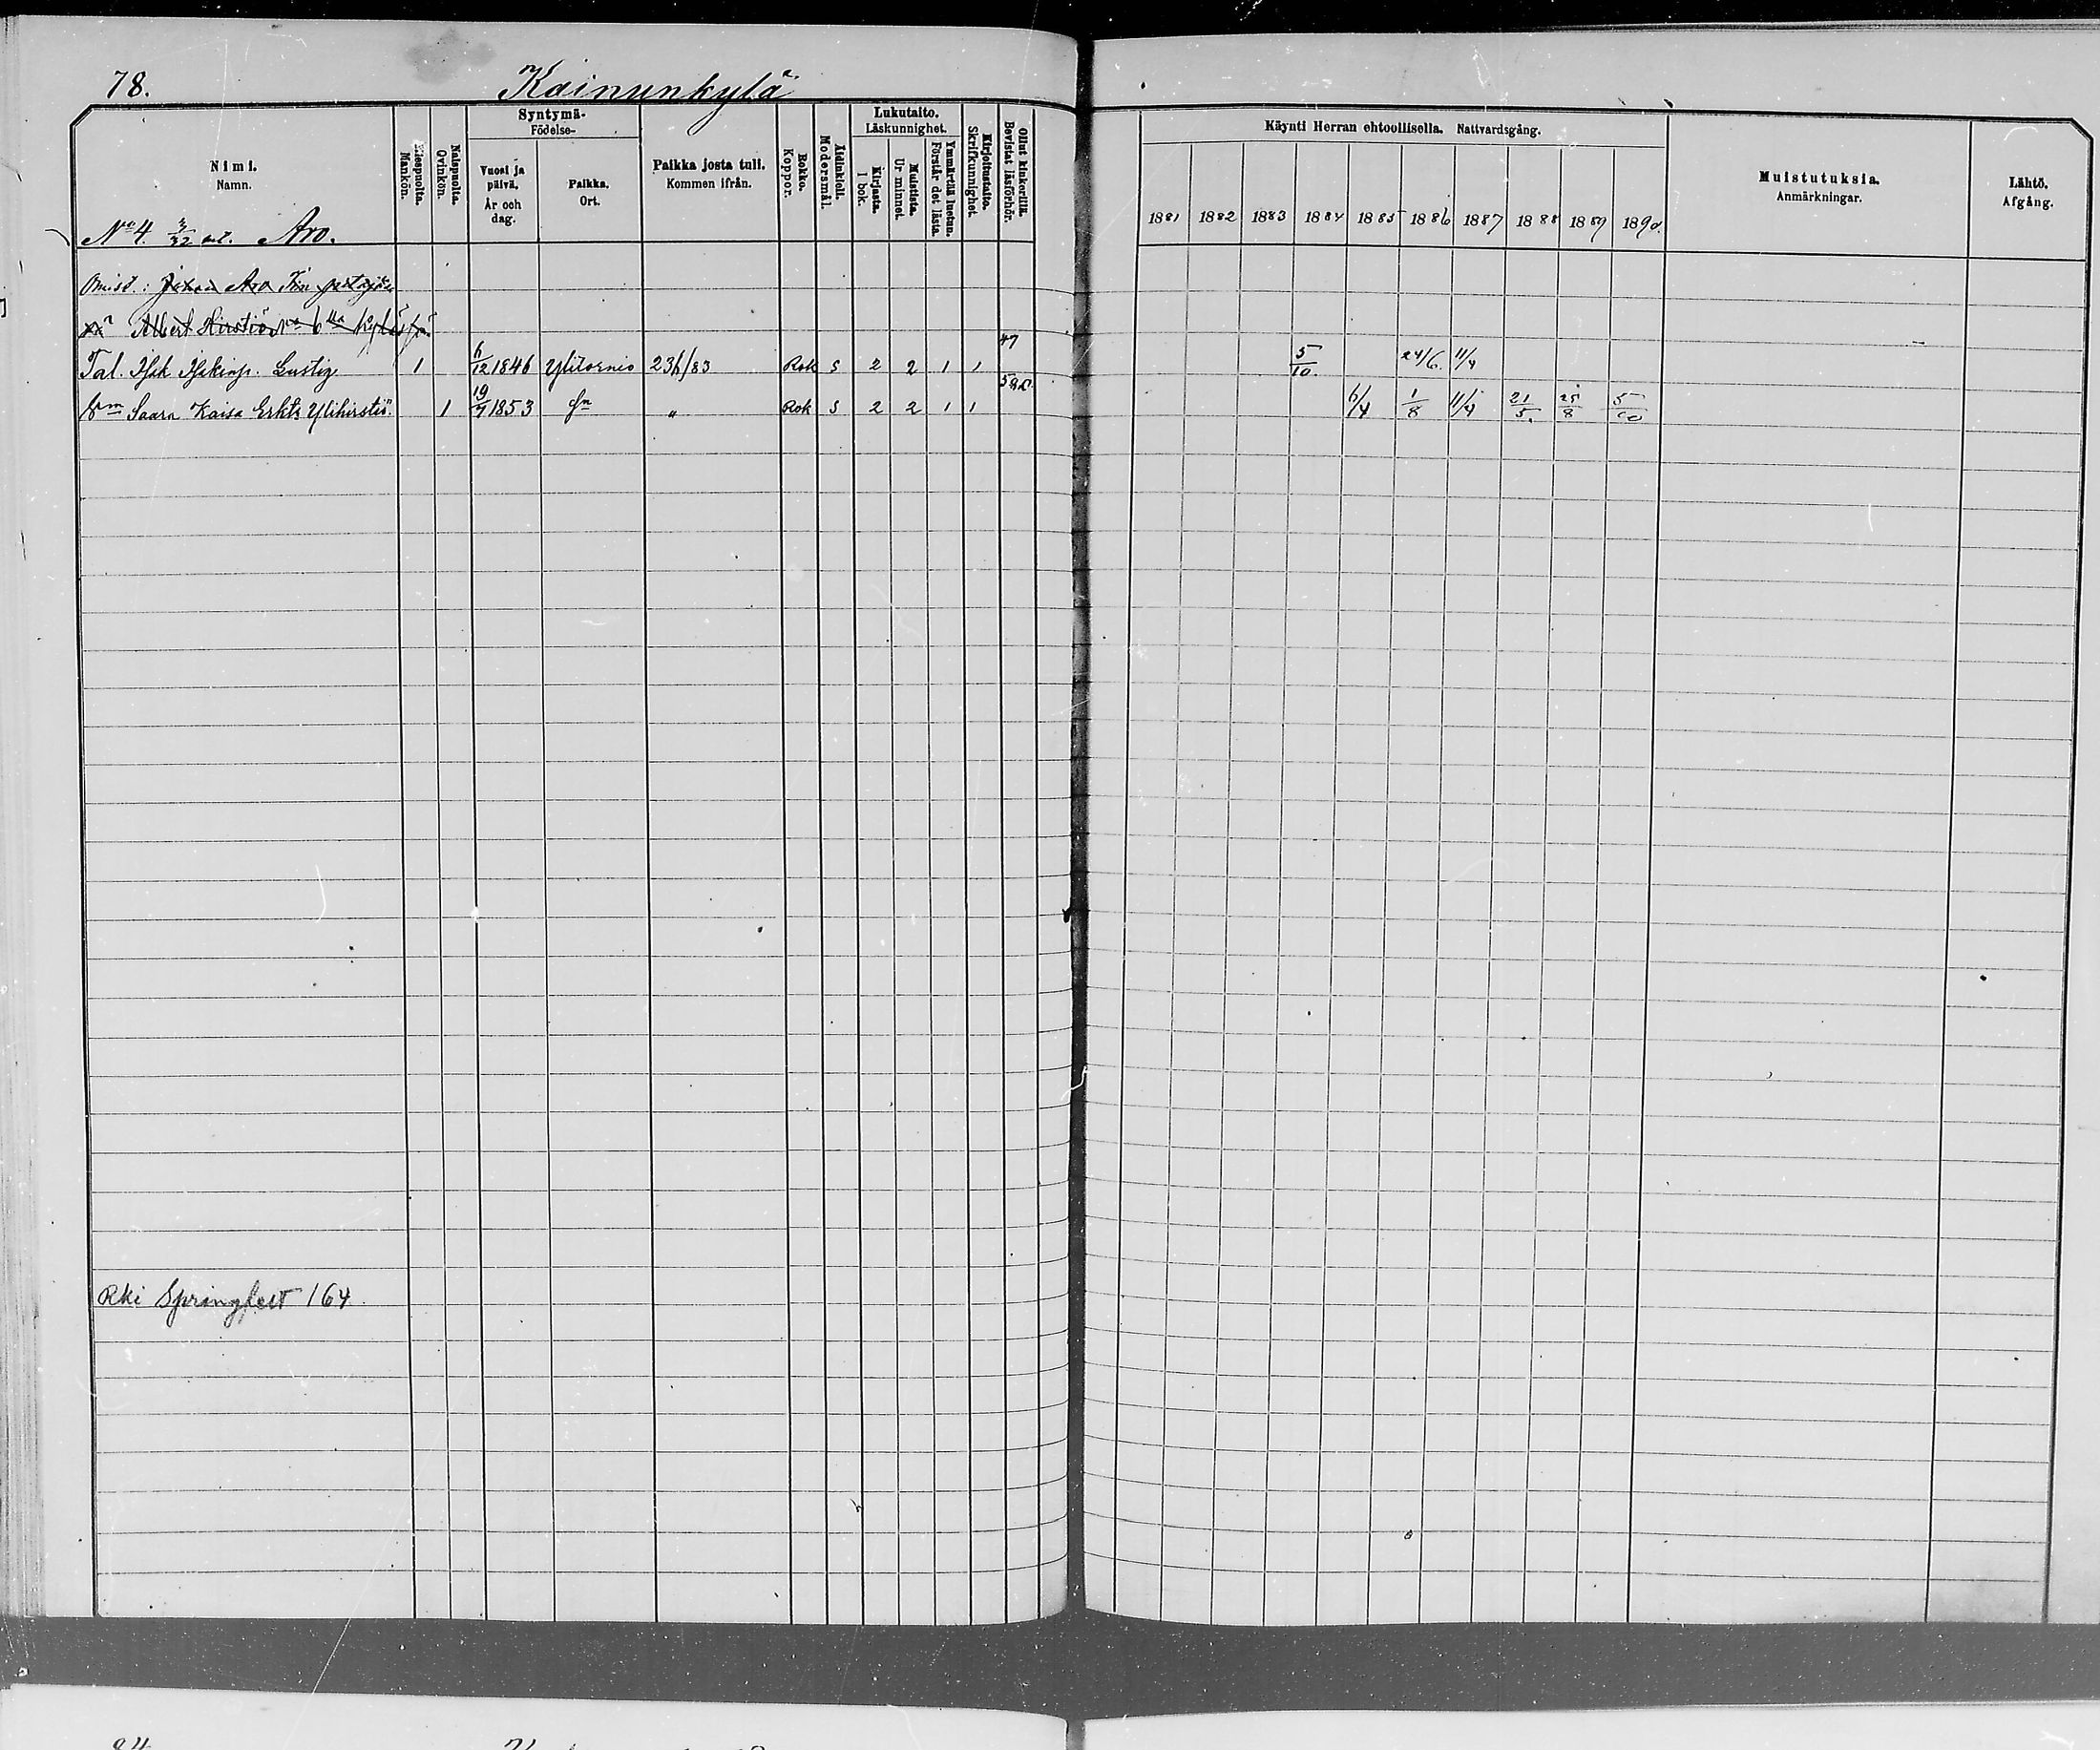 78. Kainunkylä
Nimi.
Namn.
Miespuolta.
Mankön.
Naispuolta.
Qvinkön.
Syntymä-
Födelse-
Vuosi ja
päivä.
År och
dag.
Paikka.
Ort.
Paikka josta tuli.
Kommen ifrån.
Rokko.
Koppor.
Äidinkieli.
Modersmål.
Lukutaito.
Läskunnighet.
Kirjasta.
I bok.
Muistista.
Ur minnet.
Ymmärtää luetun.
Förstår det lästa.
Kirjoitustaito.
Skrifkunnighet.
Ollut kinkerillä.
Bevistat läsförhör.
Käynti Herran ehtoollisella. Nattvardsgång.
1881 1882 1883 1884 1885 1886 1887 1888 1889 1890.
Muistutuksia.
Anmärkningar.
Lähtö.
Afgång.
No 4. 3/32 mt. Aro.
Omist.: Johan Aro Iin
Albert Hirstiö
47
Tal. Isak Isakinp. Lustig 1 6/12 1846 Ylitornio 23 6/83 Rok S 2 2 1 1 5/10. 24/6. 11/4
Vm Saara Kaisa Erkts Ylihirstiö 1 19/7 1853 sn " Rok S 2 2 1 1 6/4 1/8 11/4 21/5. 25/8 5/10
Rki Springfelt 164.
84